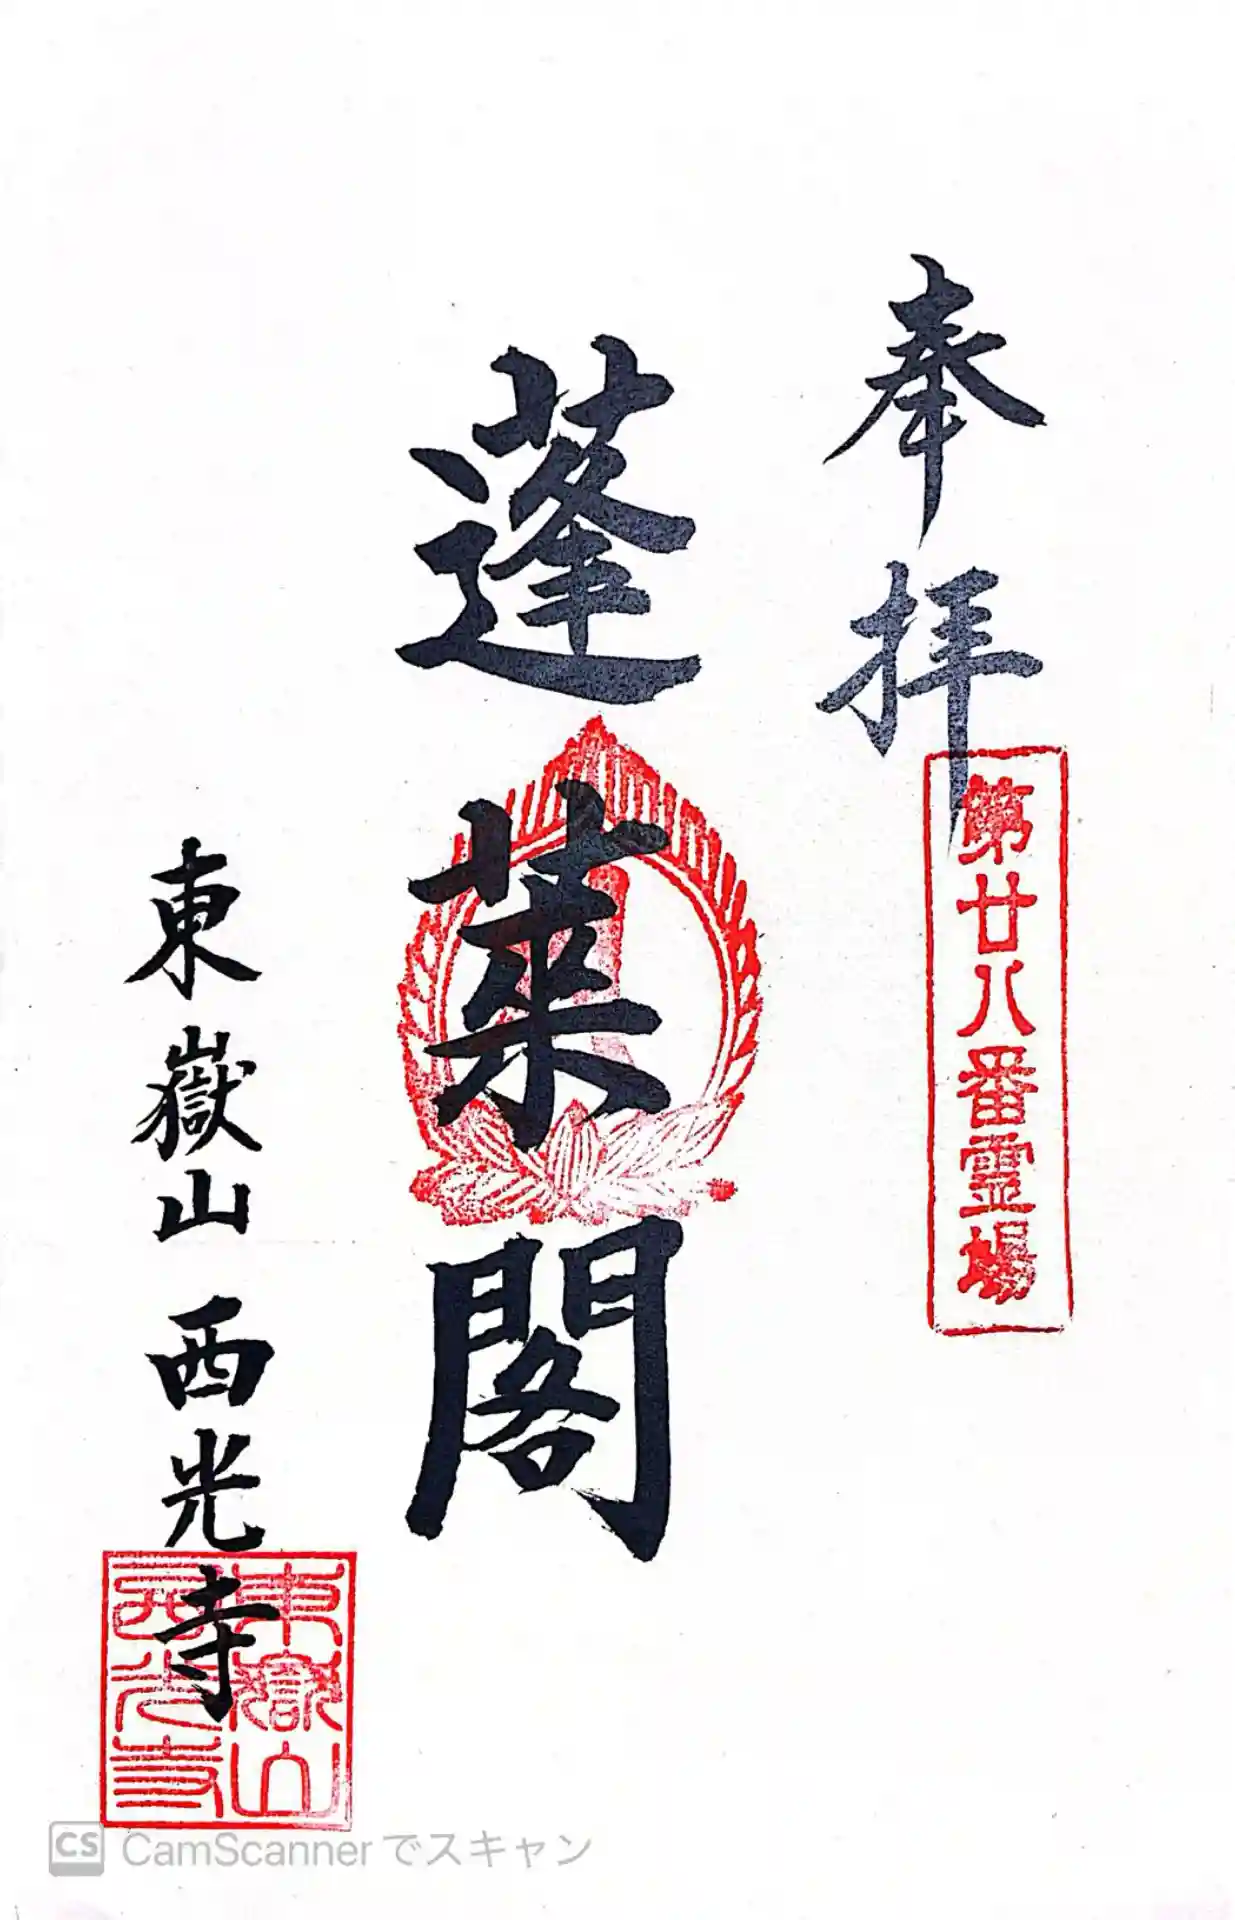 奉拝
第廿八番霊場
蓬莱閣
東嶽山 西光寺
東嶽山
西光寺
CS CamScannerでスキャン